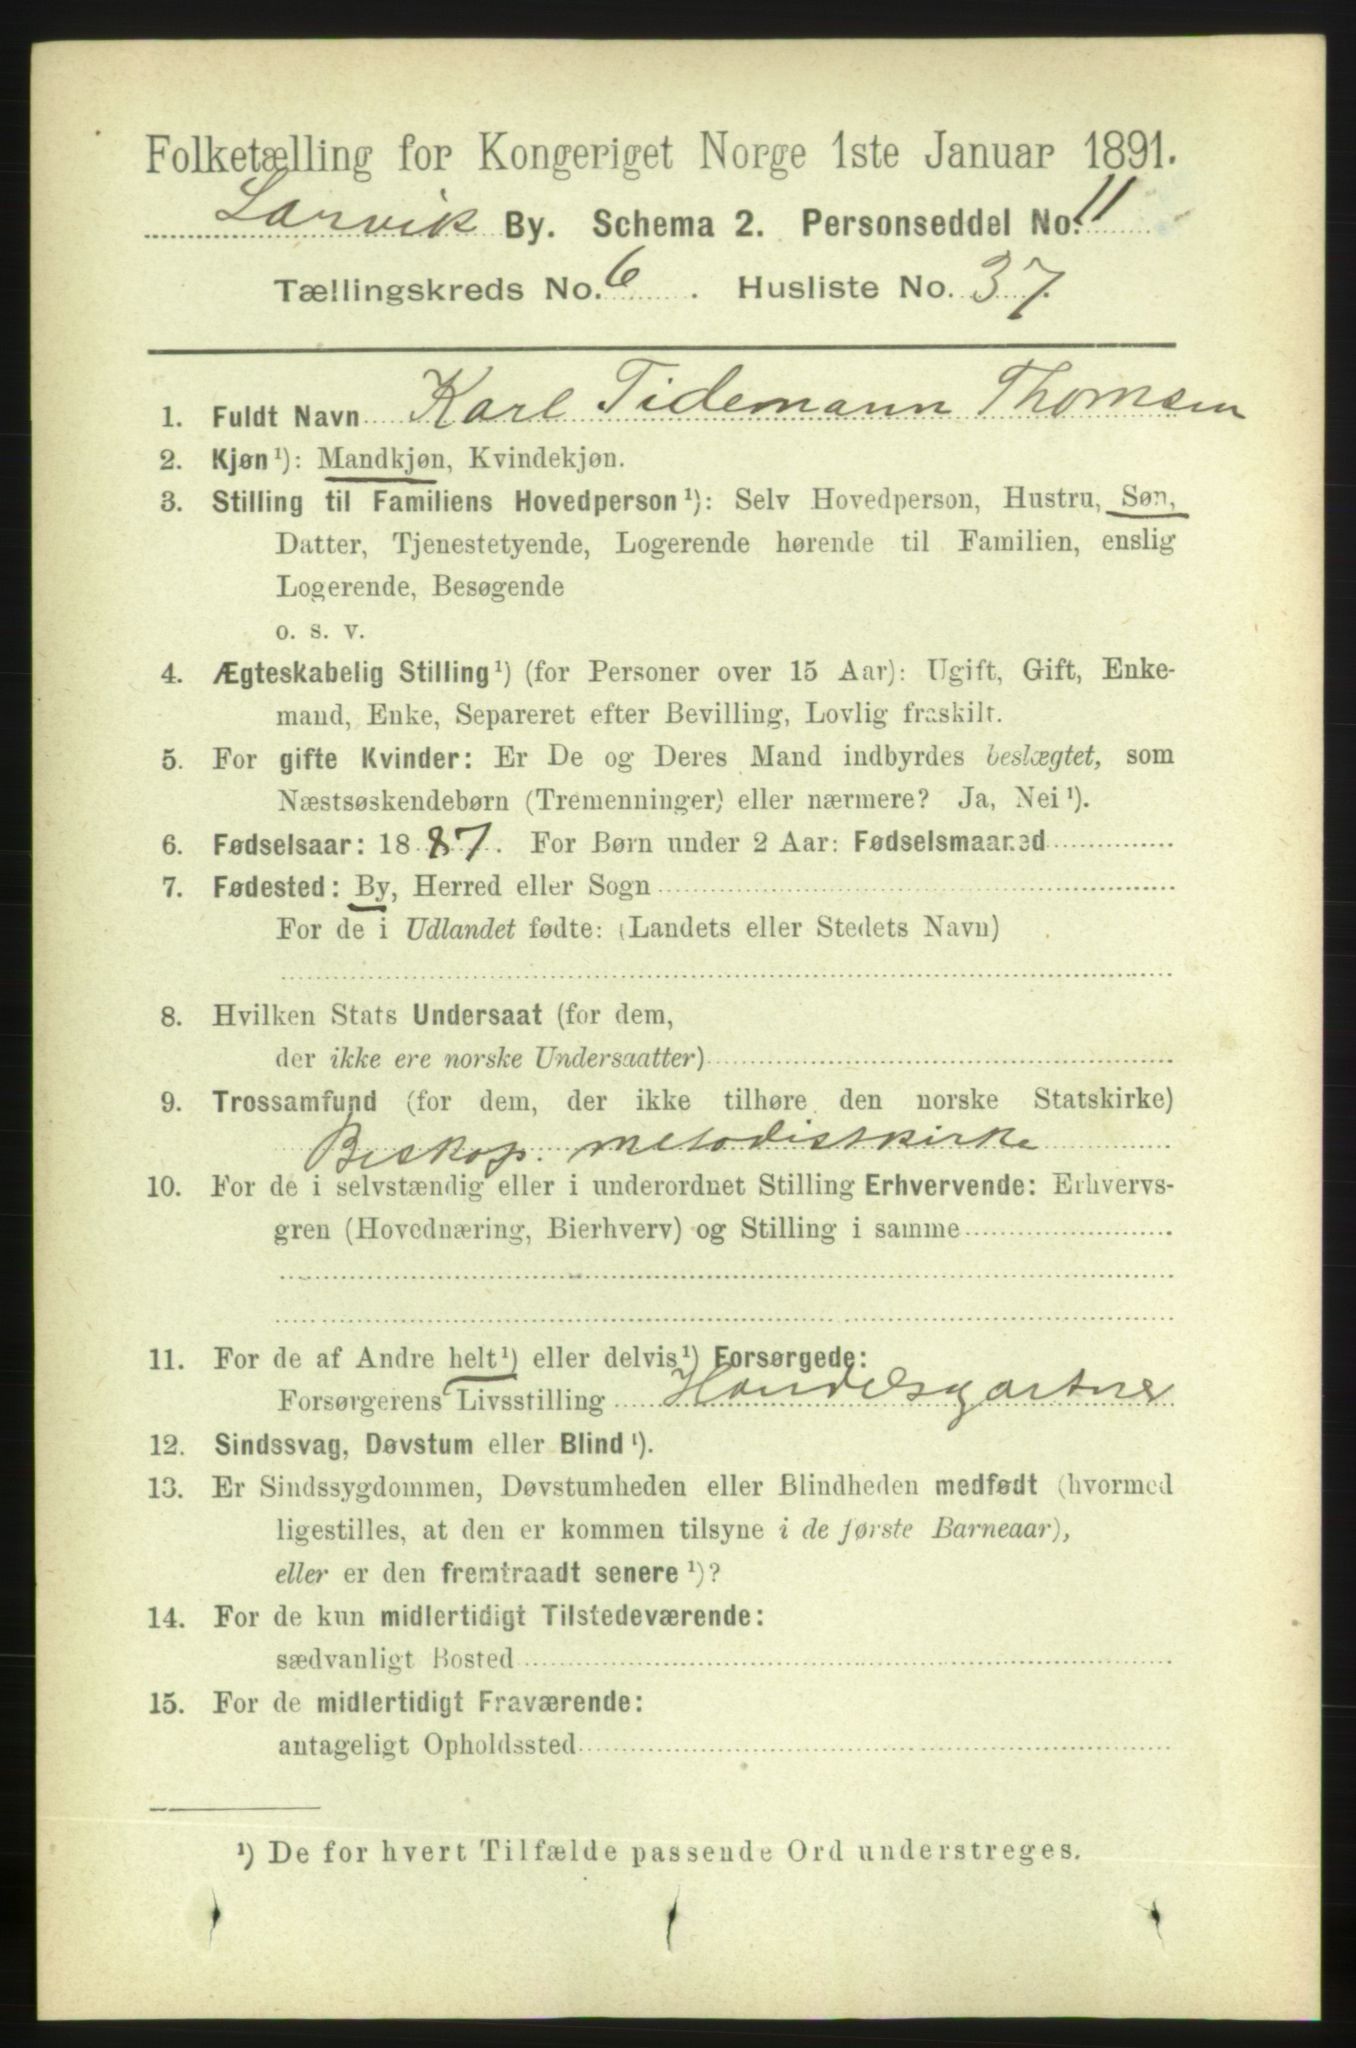 Folketælling for Kongeriget Norge 1ste Januar 1891.
Larvik By. Schema 2. Personseddel No. 11
Tællingskreds No. 6 . Husliste No. 37.
1. Fuldt Navn Karl Tidemann Thomsen
2. Kjøn¹): Mandkjøn, Kvindekjøn.
3. Stilling til Familiens Hovedperson¹): Selv Hovedperson, Hustru, Søn,
Datter, Tjenestetyende, Logerende hørende til Familien, enslig
Logerende, Besøgende
o. s. v.
4. Ægteskabelig Stilling¹) (for Personer over 15 Aar): Ugift, Gift, Enke-
mand, Enke, Separeret efter Bevilling, Lovlig fraskilt.
5. For gifte Kvinder: Er De og Deres Mand indbyrdes beslægtet, som
Næstsøskendebørn (Tremenninger) eller nærmere? Ja, Nei¹).
6. Fødselsaar: 1887. For Børn under 2 Aar: Fødselsmaaned
7. Fødested: By, Herred eller Sogn
For de i Udlandet fødte: (Landets eller Stedets Navn)
8. Hvilken Stats Undersaat (for dem,
der ikke ere norske Undersaatter)
9. Trossamfund (for dem, der ikke tilhøre den norske Statskirke)
Biskop. metodistkirke
10. For de i selvstændig eller i underordnet Stilling Erhvervende: Erhvervs-
gren (Hovednæring, Bierhverv) og Stilling i samme
11. For de af Andre helt¹) eller delvis¹) Forsørgede:
Forsørgerens Livsstilling Handelsgartner
12. Sindssvag, Døvstum eller Blind¹).
13. Er Sindssygdommen, Døvstumheden eller Blindheden medfødt (hvormed
ligestilles, at den er kommen tilsyne i de første Barneaar),
eller er den fremtraadt senere¹)?
14. For de kun midlertidigt Tilstedeværende:
sædvanligt Bosted
15. For de midlertidigt Fraværende:
antageligt Opholdssted
¹) De for hvert Tilfælde passende Ord understreges.